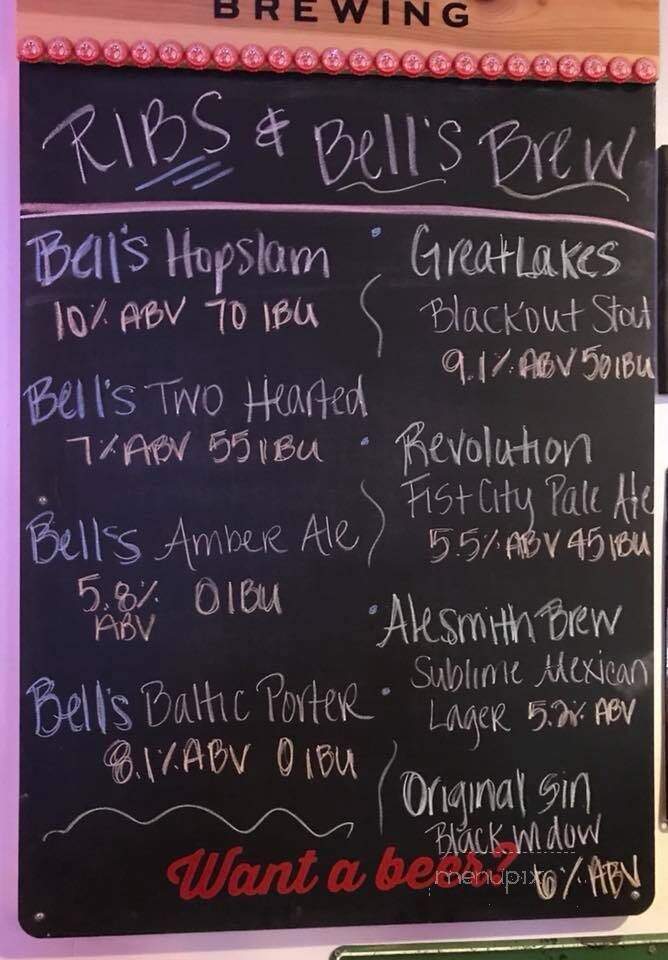 BREWING
RIBS & Bell's Brew
Bell's Hopslam
10% ABV 70 IBU
Bell's Two Hearted
7% ABV 55 IBU
Bell's Amber Ale
5.8% 0 IBU
ABV
Bell's Baltic Porter
8.1% ABV 0 IBU
Great Lakes
Blackout Stout
9.1% ABV 50 IBU
Revolution
Fist City Pale Ale
5.5% ABV 45 IBU
Alesmith Brew
Sublime Mexican
Lager 5.2% ABV
Original Sin
Black Widow
6% ABV
Want a beer?
menupix